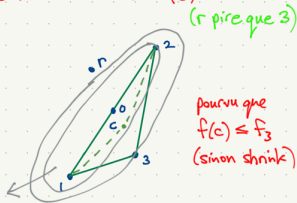 (r pire que 3)
2
r
0
c
pourvu que
f(c) ≤ f₃
(sinon shrink)
3
1